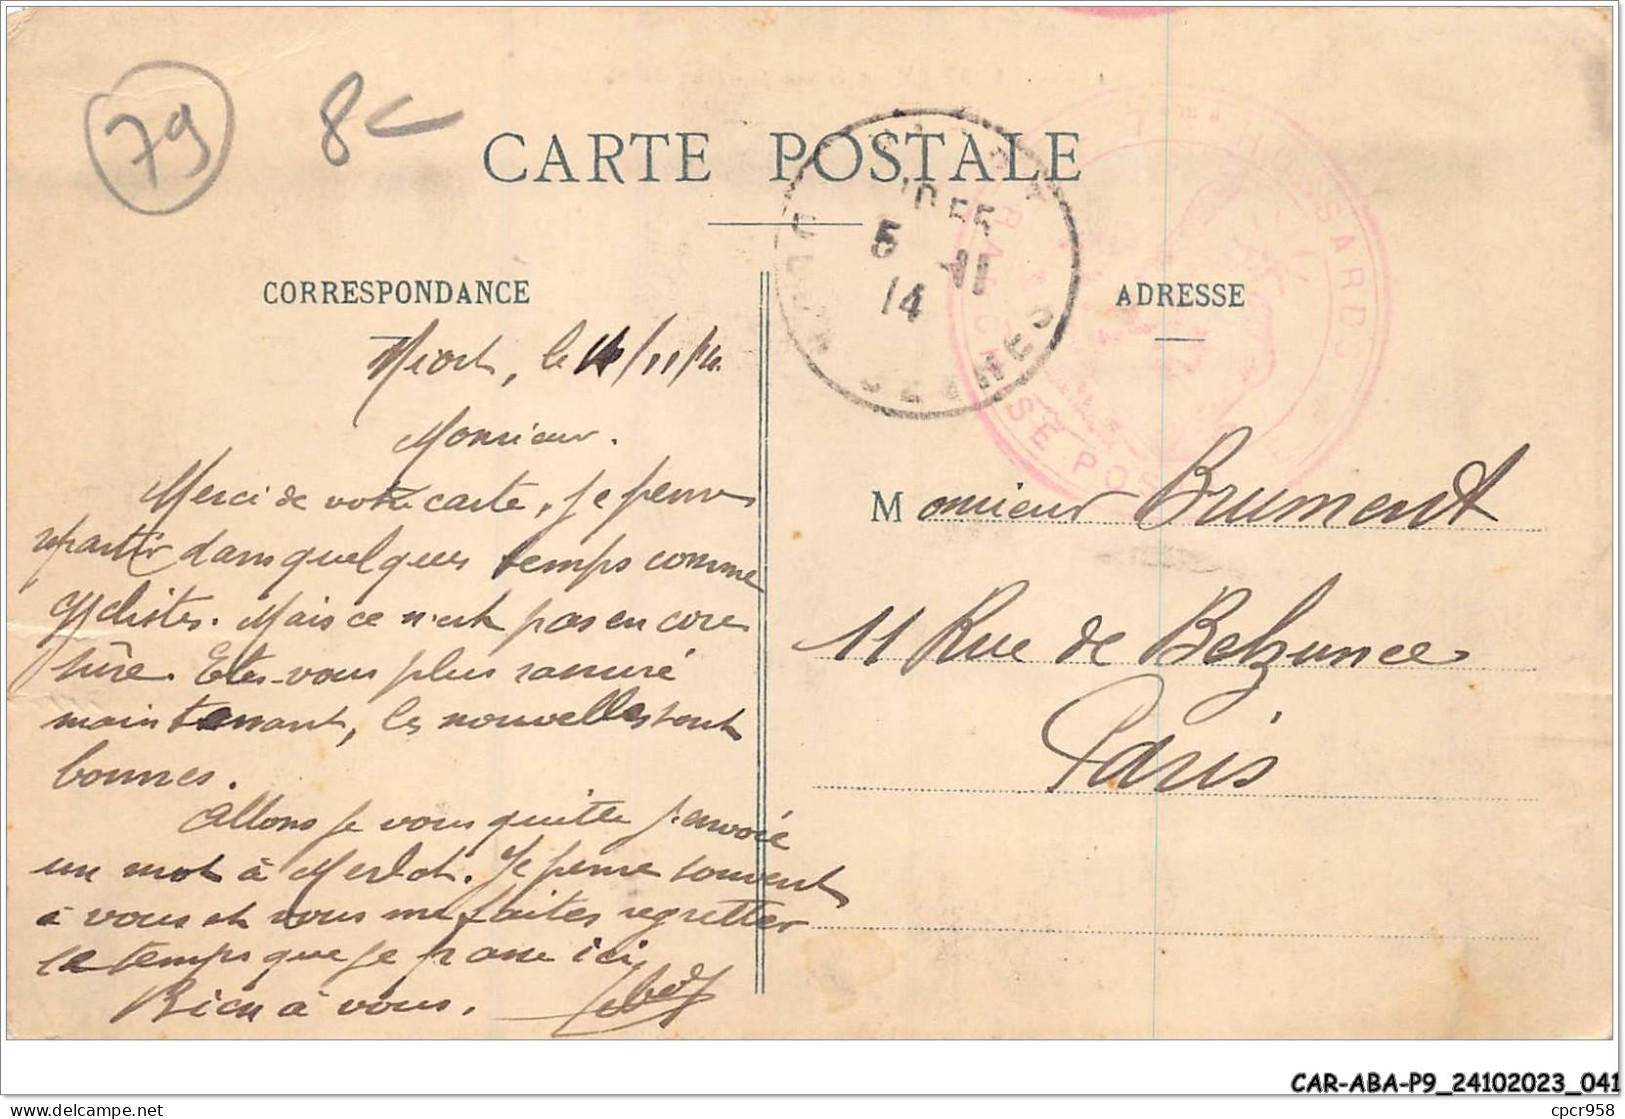 79
8
CARTE POSTALE
7me HUSSARDS
NIORT
5 -11
14
DEUX SEVRES
CORRESPONDANCE
ADRESSE
Niort, le 4/11/14
Monsieur.
Merci de votre carte, je pense
repartir dans quelques temps comme
cycliste. Mais ce n'est pas encore
sûre. Etes-vous plus rassuré
maintenant, les nouvelles sont
bonnes.
Allons je vous quitte j'envoie
un mot à Merlot. Je pense souvent
à vous et vous me faites regretter
le temps que je passe ici
Bien à vous.
Monsieur Brument
11 Rue de Belzunce
Paris
CAR-ABA-P9_24102023_041
delcampe.net
cpcr958